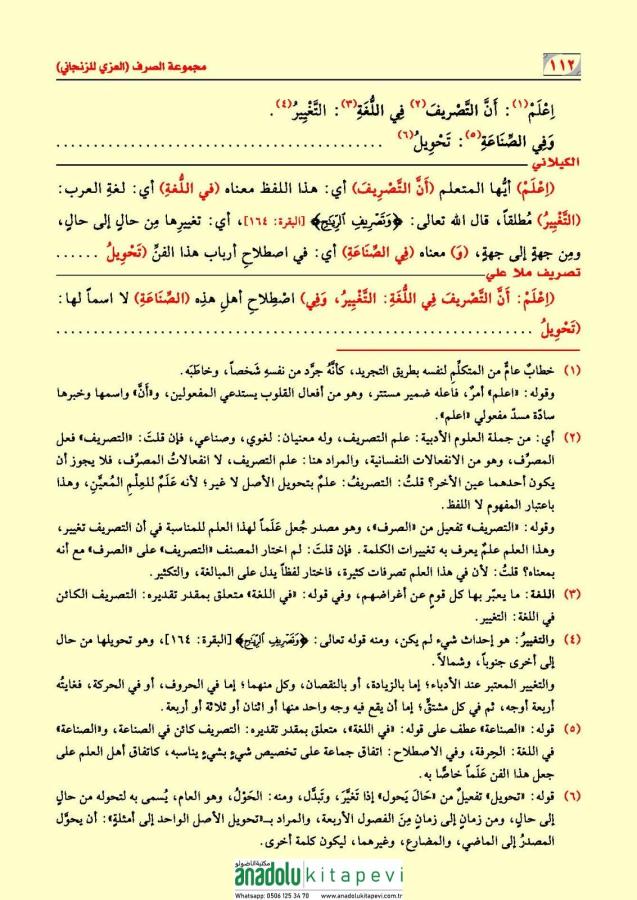 ١١٢
مجموعة الصرف (العزي للزنجاني)
اِعْلَمْ(١): أَنَّ التَّصْرِيفَ(٢) فِي اللُّغَةِ(٣): التَّغْيِيرُ(٤).
وَفِي الصِّنَاعَةِ(٥): تَحْوِيلُ(٦) ............................................
الكيلاني
(اِعْلَمْ) أيُّها المتعلم (أَنَّ التَّصْرِيفَ) أي: هذا اللفظ معناه (في اللُّغةِ) أي: لغةِ العرب:
(التَّغْيِيرُ) مُطلقاً، قال الله تعالى: ﴿وَتَصْرِيفِ ٱلرِّيَٰحِ﴾ [البقرة: ١٦٤]، أي: تغييرها مِن حالٍ إلى حالٍ،
ومِن جهةٍ إلى جهةٍ، (وَ) معناه (فِي الصِّنَاعَةِ) أي: في اصطلاحِ أرباب هذا الفنِّ (تَحْوِيلُ ......
تصريف ملا علي
(اِعْلَمْ: أَنَّ التَّصْرِيفَ فِي اللُّغَةِ: التَّغْيِيرُ، وَفِي) اصْطِلَاحِ أهلِ هذِه (الصِّنَاعَةِ) لا اسماً لها:
(تَحْوِيلُ ................................................................
(١) خطابٌ عامٌّ من المتكلِّمِ لنفسه بطريق التجريد، كأنَّهُ جرَّد من نفسهِ شَخصاً، وخاطَبَه.
وقوله: «اعلم» أمرٌ، فاعله ضمير مستتر، وهو من أفعال القلوب يستدعي المفعولين، و«أنَّ» واسمها وخبرها
سادّة مسدّ مفعولي «اعلم».
(٢) أي: من جملة العلوم الأدبية: علم التصريف، وله معنيان: لغوي، وصناعي، فإن قلتَ: «التصريف» فعل
المصرِّف، وهو من الانفعالات النفسانية، والمراد هنا: علم التصريف، لا انفعالاتُ المصرِّف، فلا يجوز أن
يكون أحدهما عين الآخر؟ قلتُ: التصريفُ: علمٌ بتحويل الأصل لا غير؛ لأنه عَلَمٌ للعِلْمِ المُعيَّنِ، وهذا
باعتبار المفهوم لا اللفظ.
وقوله: «التصريف» تفعيل من «الصرف»، وهو مصدر جُعل عَلَماً لهذا العلم للمناسبة في أن التصريف تغيير،
وهذا العلم علمٌ يعرف به تغييرات الكلمة. فإن قلتَ: لم اختار المصنف «التصريف» على «الصرف» مع أنه
بمعناه؟ قلتُ: لأن في هذا العلم تصرفات كثيرة، فاختار لفظاً يدل على المبالغة، والتكثير.
(٣) اللغة: ما يعبّر بها كل قومٍ عن أغراضهم، وفي قوله: «في اللغة» متعلق بمقدر تقديره: التصريف الكائن
في اللغة: التغيير.
(٤) والتغييرُ: هو إحداث شيء لم يكن، ومنه قوله تعالى: ﴿وَتَصْرِيفِ ٱلرِّيَٰحِ﴾ [البقرة: ١٦٤]، وهو تحويلها من حال
إلى أخرى جنوباً، وشمالاً.
والتغيير المعتبر عند الأدباء؛ إما بالزيادة، أو بالنقصان، وكل منهما؛ إما في الحروف، أو في الحركة، فغايتُه
أربعة أوجه، ثم في كل مشتقٍّ؛ إما أن يقع فيه وجه واحد منها أو اثنان أو ثلاثة أو أربعة.
(٥) قوله: «الصناعة» عطف على قوله: «في اللغة»، متعلق بمقدر تقديره: التصريف كائن في الصناعة، و«الصناعة»
في اللغة: الحِرفة، وفي الاصطلاح: اتفاق جماعة على تخصيص شيءٍ بشيءٍ يناسبه، كاتفاق أهل العلم على
جعل هذا الفن عَلَماً خاصًّا به.
(٦) قوله: «تحويل» تفعيلٌ من «حَالَ يَحول» إذا تَغيَّرَ، وتَبدَّل، ومنه: الحَوْلُ، وهو العام، يُسمى به لتحوله من حالٍ
إلى حال، ومن زمانٍ إلى زمانٍ مِنَ الفصول الأربعة، والمراد بـ«تحويل الأصل الواحد إلى أمثلةٍ»: أن يحوَّل
المصدرُ إلى الماضي، والمضارع، وغيرهما، ليكون كلمة أخرى.
مكتبة اناضولو
anadolu kitapevi
Whatsapp: 0506 125 34 70 www.anadolukitapevi.com.tr